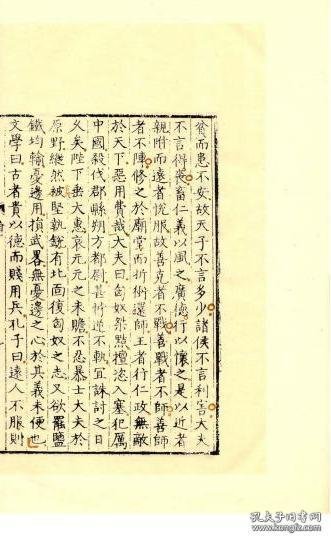 貧而患不安故天子不言多少諸侯不言利害大夫
不言得喪畜仁義以風之廣德行以懷之是以近者
親附而遠者悅服故善克者不戰善戰者不師善師
者不陣修之於廟堂而折衝還師王者行仁政無敵
於天下惡用費哉大夫曰匈奴桀黠擅恣入塞犯厲
中國殺伐郡縣朔方都尉甚悖逆不軌宜誅討之日
久矣陛下垂大惠哀元元之未贍不忍暴士大夫於
原野縱然被堅執銳有北面復匈奴之志又欲罷鹽
鐵均輸憂邊用損武畧無憂邊之心於其義未便也
文學曰古者貴以德而賤用兵孔子曰遠人不服則
孔夫子旧书网